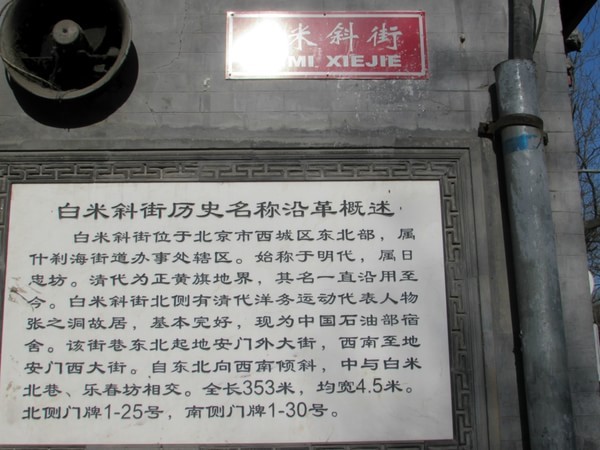 米斜街
MI XIEJIE
白米斜街历史名称沿革概述
白米斜街位于北京市西城区东北部，属
什刹海街道办事处辖区。始称于明代，属日
忠坊。清代为正黄旗地界，其名一直沿用至
今。白米斜街北侧有清代洋务运动代表人物
张之洞故居，基本完好，现为中国石油部宿
舍。该街巷东北起地安门外大街，西南至地
安门西大街。自东北向西南倾斜，中与白米
北巷、乐春坊相交。全长353米，均宽4.5米。
北侧门牌1-25号，南侧门牌1-30号。